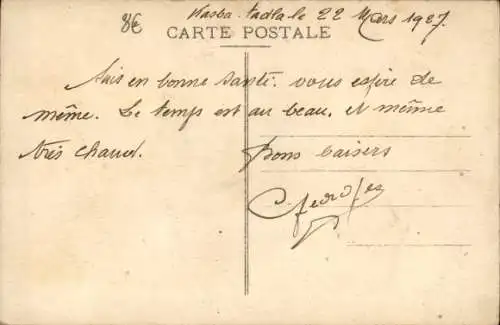 8€
Kasba-Tadla le 22 Mars 1927.
CARTE POSTALE
Suis en bonne santé. vous espère de
même. Le temps est au beau. et même
très chaud.
Bons baisers